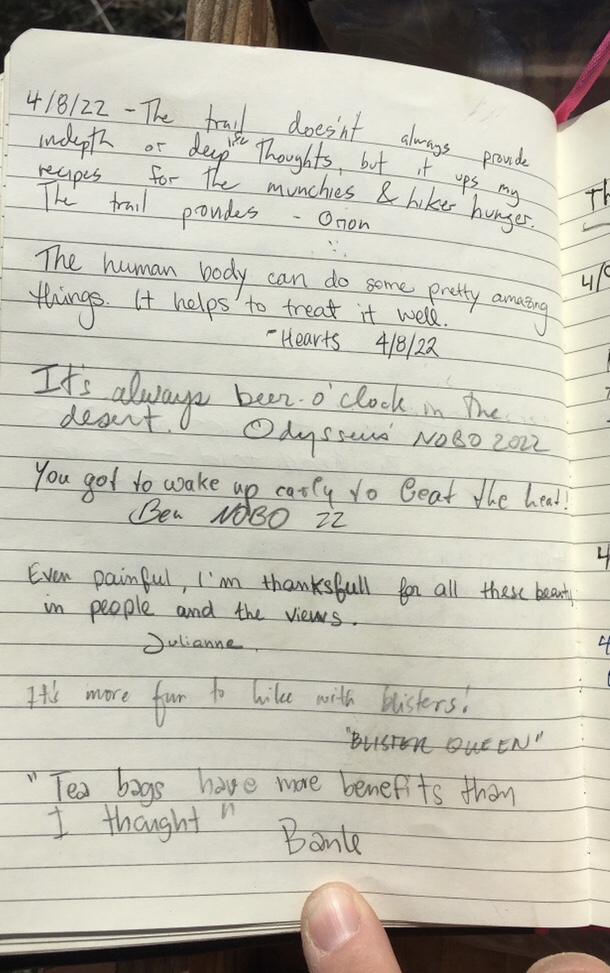 4/8/22 - The trail doesn't always provide
indepth or deep life Thoughts, but it ups my
recipes for the munchies & hiker hunger.
The trail provides - Orion
The human body can do some pretty amazing
things. It helps to treat it well.
- Hearts 4/8/22
It's always beer-o'clock in the
desert. Odysseus NOBO 2022
You got to wake up early to beat the heat!
Ben NOBO 22
Even painful, I'm thanksfull for all these beauty
in people and the views.
Julianne.
It's more fun to hike with blisters!
"BLISTER QUEEN"
" Tea bags have more benefits than
I thought "
4/
4
4